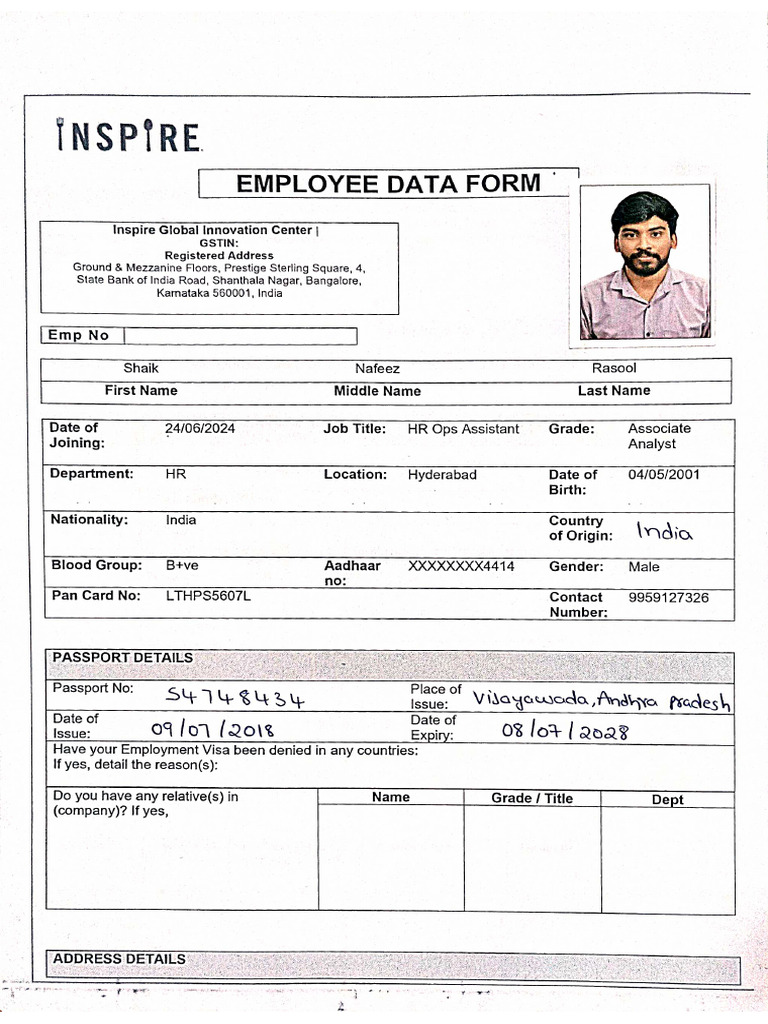 INSPIRE
EMPLOYEE DATA FORM
Inspire Global Innovation Center |
GSTIN:
Registered Address
Ground & Mezzanine Floors, Prestige Sterling Square, 4,
State Bank of India Road, Shanthala Nagar, Bangalore,
Karnataka 560001, India
Emp No
Shaik Nafeez Rasool
First Name Middle Name Last Name
Date of Joining: 24/06/2024 Job Title: HR Ops Assistant Grade: Associate Analyst
Department: HR Location: Hyderabad Date of Birth: 04/05/2001
Nationality: India Country of Origin: India
Blood Group: B+ve Aadhaar no: XXXXXXXX4414 Gender: Male
Pan Card No: LTHPS5607L Contact Number: 9959127326
PASSPORT DETAILS
Passport No: S4748434 Place of Issue: Vijayawada, Andhra Pradesh
Date of Issue: 09/07/2018 Date of Expiry: 08/07/2028
Have your Employment Visa been denied in any countries:
If yes, detail the reason(s):
Do you have any relative(s) in (company)? If yes, Name Grade / Title Dept
ADDRESS DETAILS
2